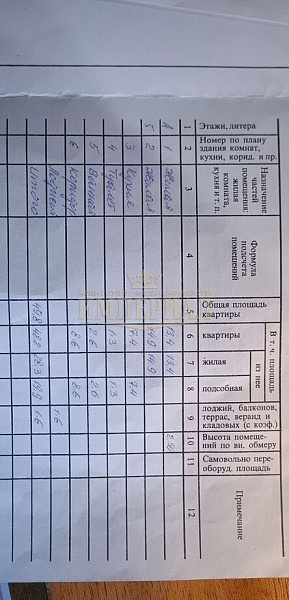 Этажи, литера
Номер по плану здания комнат, кухни, корид. и пр.
Назначение частей помещения: жилая комната, кухня и т. п.
Формула подсчета помещений
Общая площадь квартиры
В т. ч. площадь
квартиры
из нее
жилая
подсобная
лоджий, балконов, террас, веранд и кладовых (с коэф.)
Высота помещений по вн. обмеру
Самовольно переоборуд. площадь
Примечание
1 2 3 4 5 6 7 8 9 10 11 12
А 1 Жилая 13,4 13,4 2,50
5 2 Жилая 14,9 14,9
3 Кухня 7,4 7,4
4 Туалет 1,3 1,3
5 Ванная 2,6 2,6
6 Коридор 8,6 8,6
Лоджия 1,6
Итого 49,8 48,2 28,3 19,9 1,6
ИМПЕРИЯ